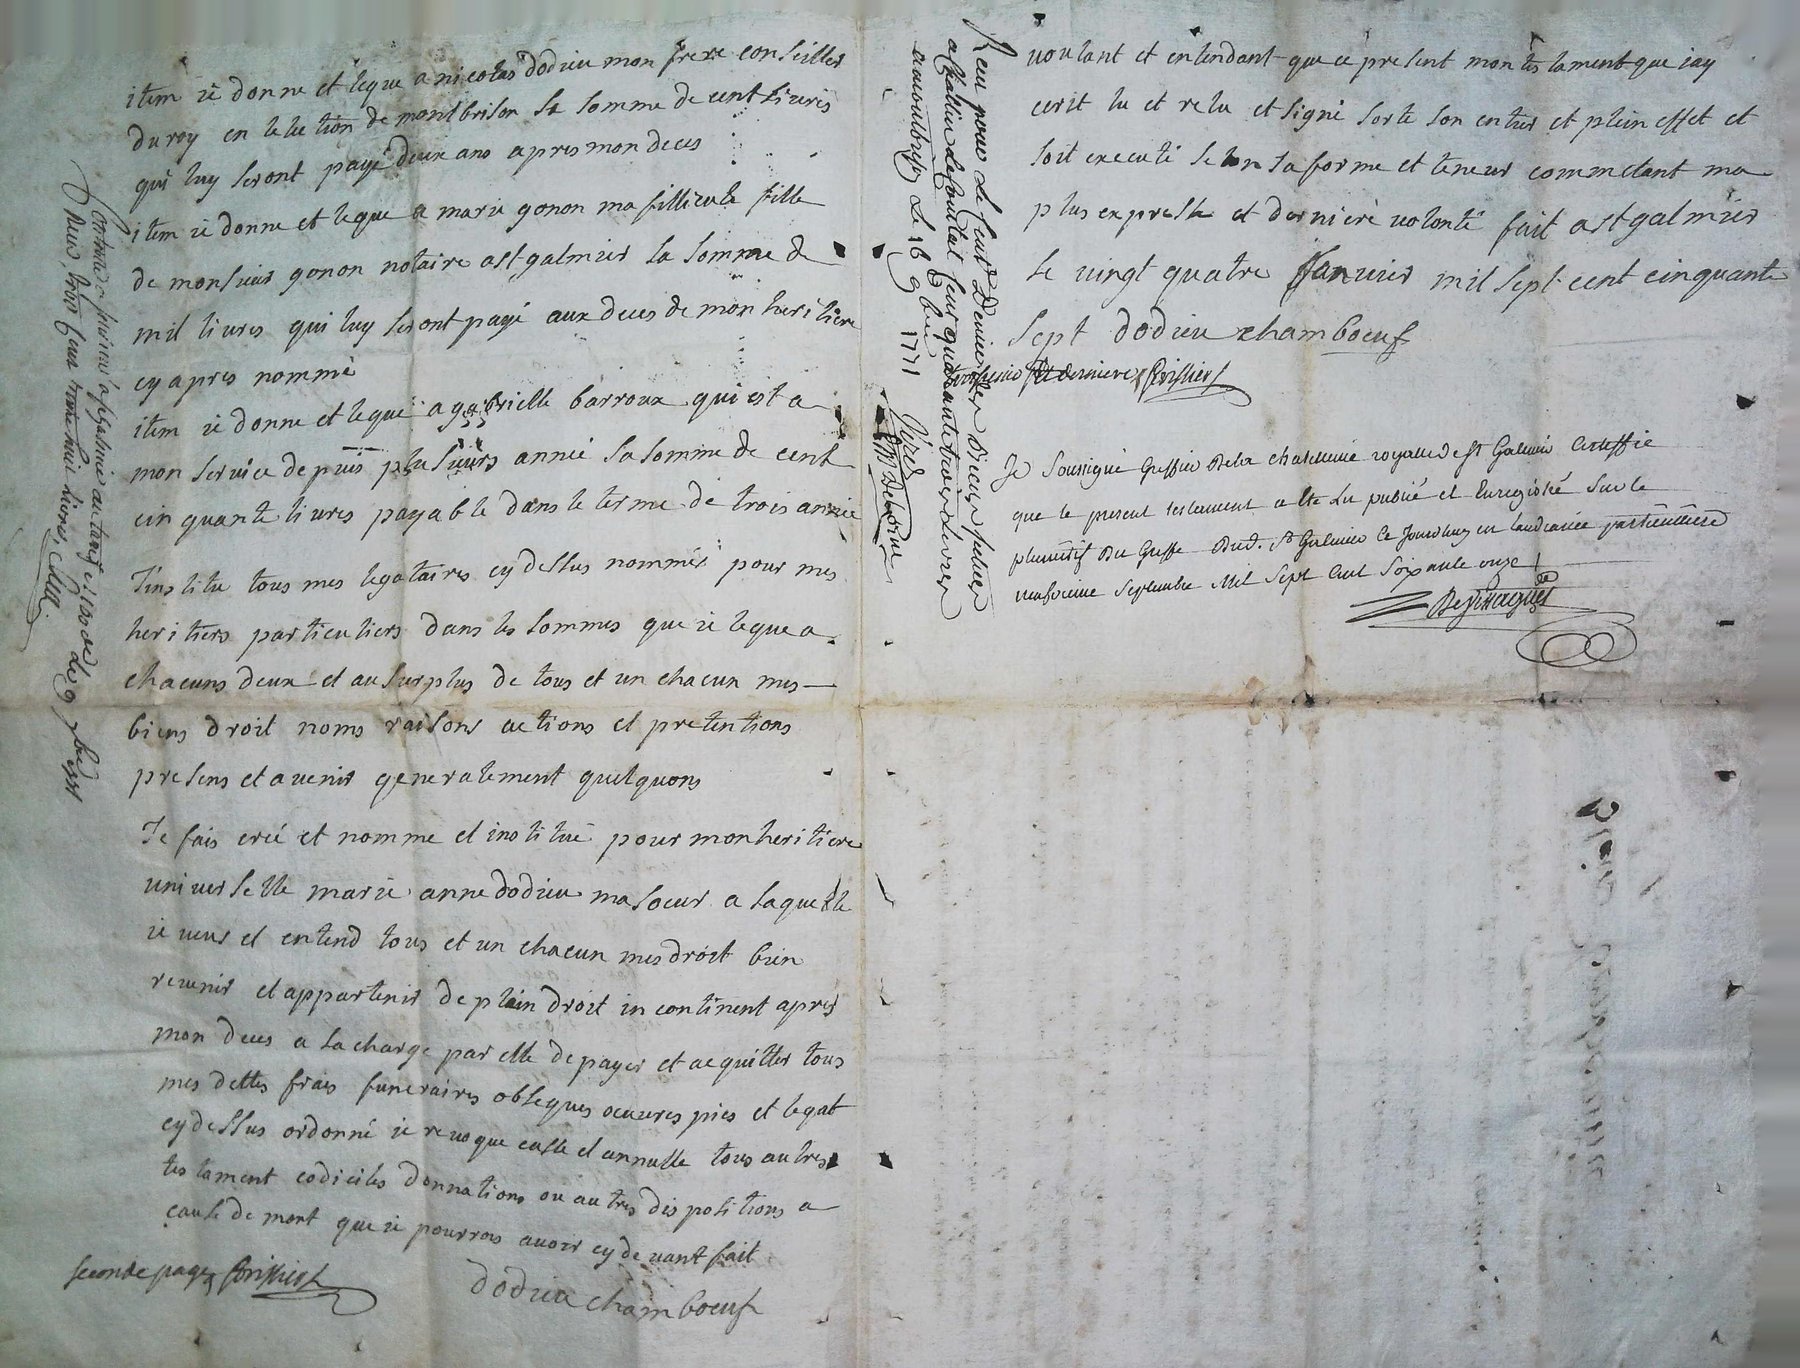 item ie donne et legue a nicolas dodieu mon frere conseiller
du roy en lelection de montbrison la somme de cent livres
qui luy seront payé deux ans apres mon deces
item ie donne et legue a marie gonon ma fillieule fille
de monsieur gonon notaire a st galmier la somme de
mil livres qui luy seront payé aux deces de mon heritiere
cy apres nommé
item ie donne et legue a gabrielle barroux qui est a
mon service depuis plusieurs année la somme de cent
cinquante livres payable dans le terme de trois année
J'institu tous mes legataires cy dessus nommés pour mes
heritiers particuliers dans les sommes que ie legue a
chacuns deux et au surplus de tous et un chacun mes
biens droit noms raisons actions et pretentions
presens et avenir generalement quelquons
Je fais créé et nomme et institué pour mon heritiere
universelle marie anne dodieu ma soeur a laquelle
ie veux et entend tous et un chacun mes droit bien
revenir et appartenir de plain droit in continent apres
mon deces a la charge par elle de payer et acquitter tous
mes dettes frais funeraires obseques oeuvres pies et legat
cy dessus ordonné ie revoque casse et annulle tous autres
testament codiciles donnations ou autres dispositions a
cause de mort que ie pourrois avoir cy devant fait
seconde page
dodieu chamboeuf
voulant et entendant que ce present mon testament que iay
ecrit lu et relu et signé sorte son entier et plein effet et
soit executé selon sa forme et teneur comme etant ma
plus expresse et derniere volonté fait a st galmier
le vingt quatre Janvier mil sept cent cinquante
sept dodieu chamboeuf
troisieme et derniere
Je soussigné Greffier de la chatellenie royalle de st Galmier Certiffie
que le present testament a eté Lu publié et Enregistré sur le
plumitif du Greffe dud. st Galmier Ce Jourdhuy en laudiance particuilliere
neufvieme Septembre Mil Sept Cent Soixante onze
Receu pour le cent denier
le 16 9bre 1771